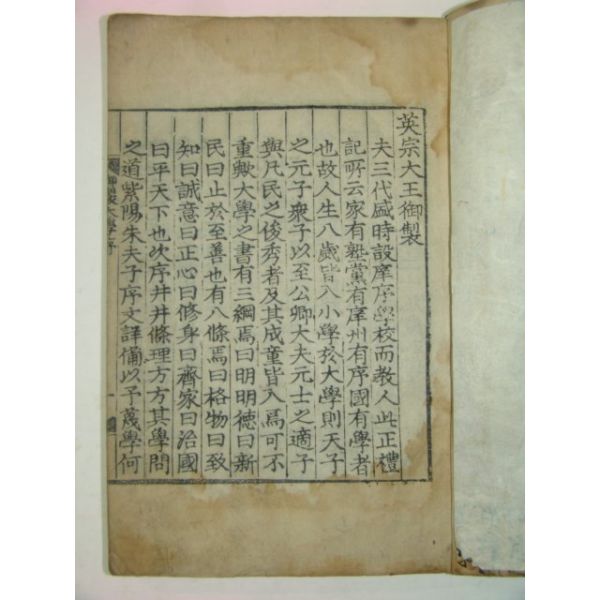 英宗大王御製
夫三代盛時設庠序學校而教人此正禮
記所云家有塾黨有庠州有序國有學者
也故人生八歲皆入小學於大學則天子
之元子衆子以至公卿大夫元士之適子
與凡民之俊秀者及其成童皆入焉可不
重歟大學之書有三綱焉曰明明德曰新
民曰止於至善也有八條焉曰格物曰致
知曰誠意曰正心曰修身曰齊家曰治國
曰平天下也次序井井條理方方其學問
之道紫陽朱夫子序文詳備以予蔑學何
御製大學序